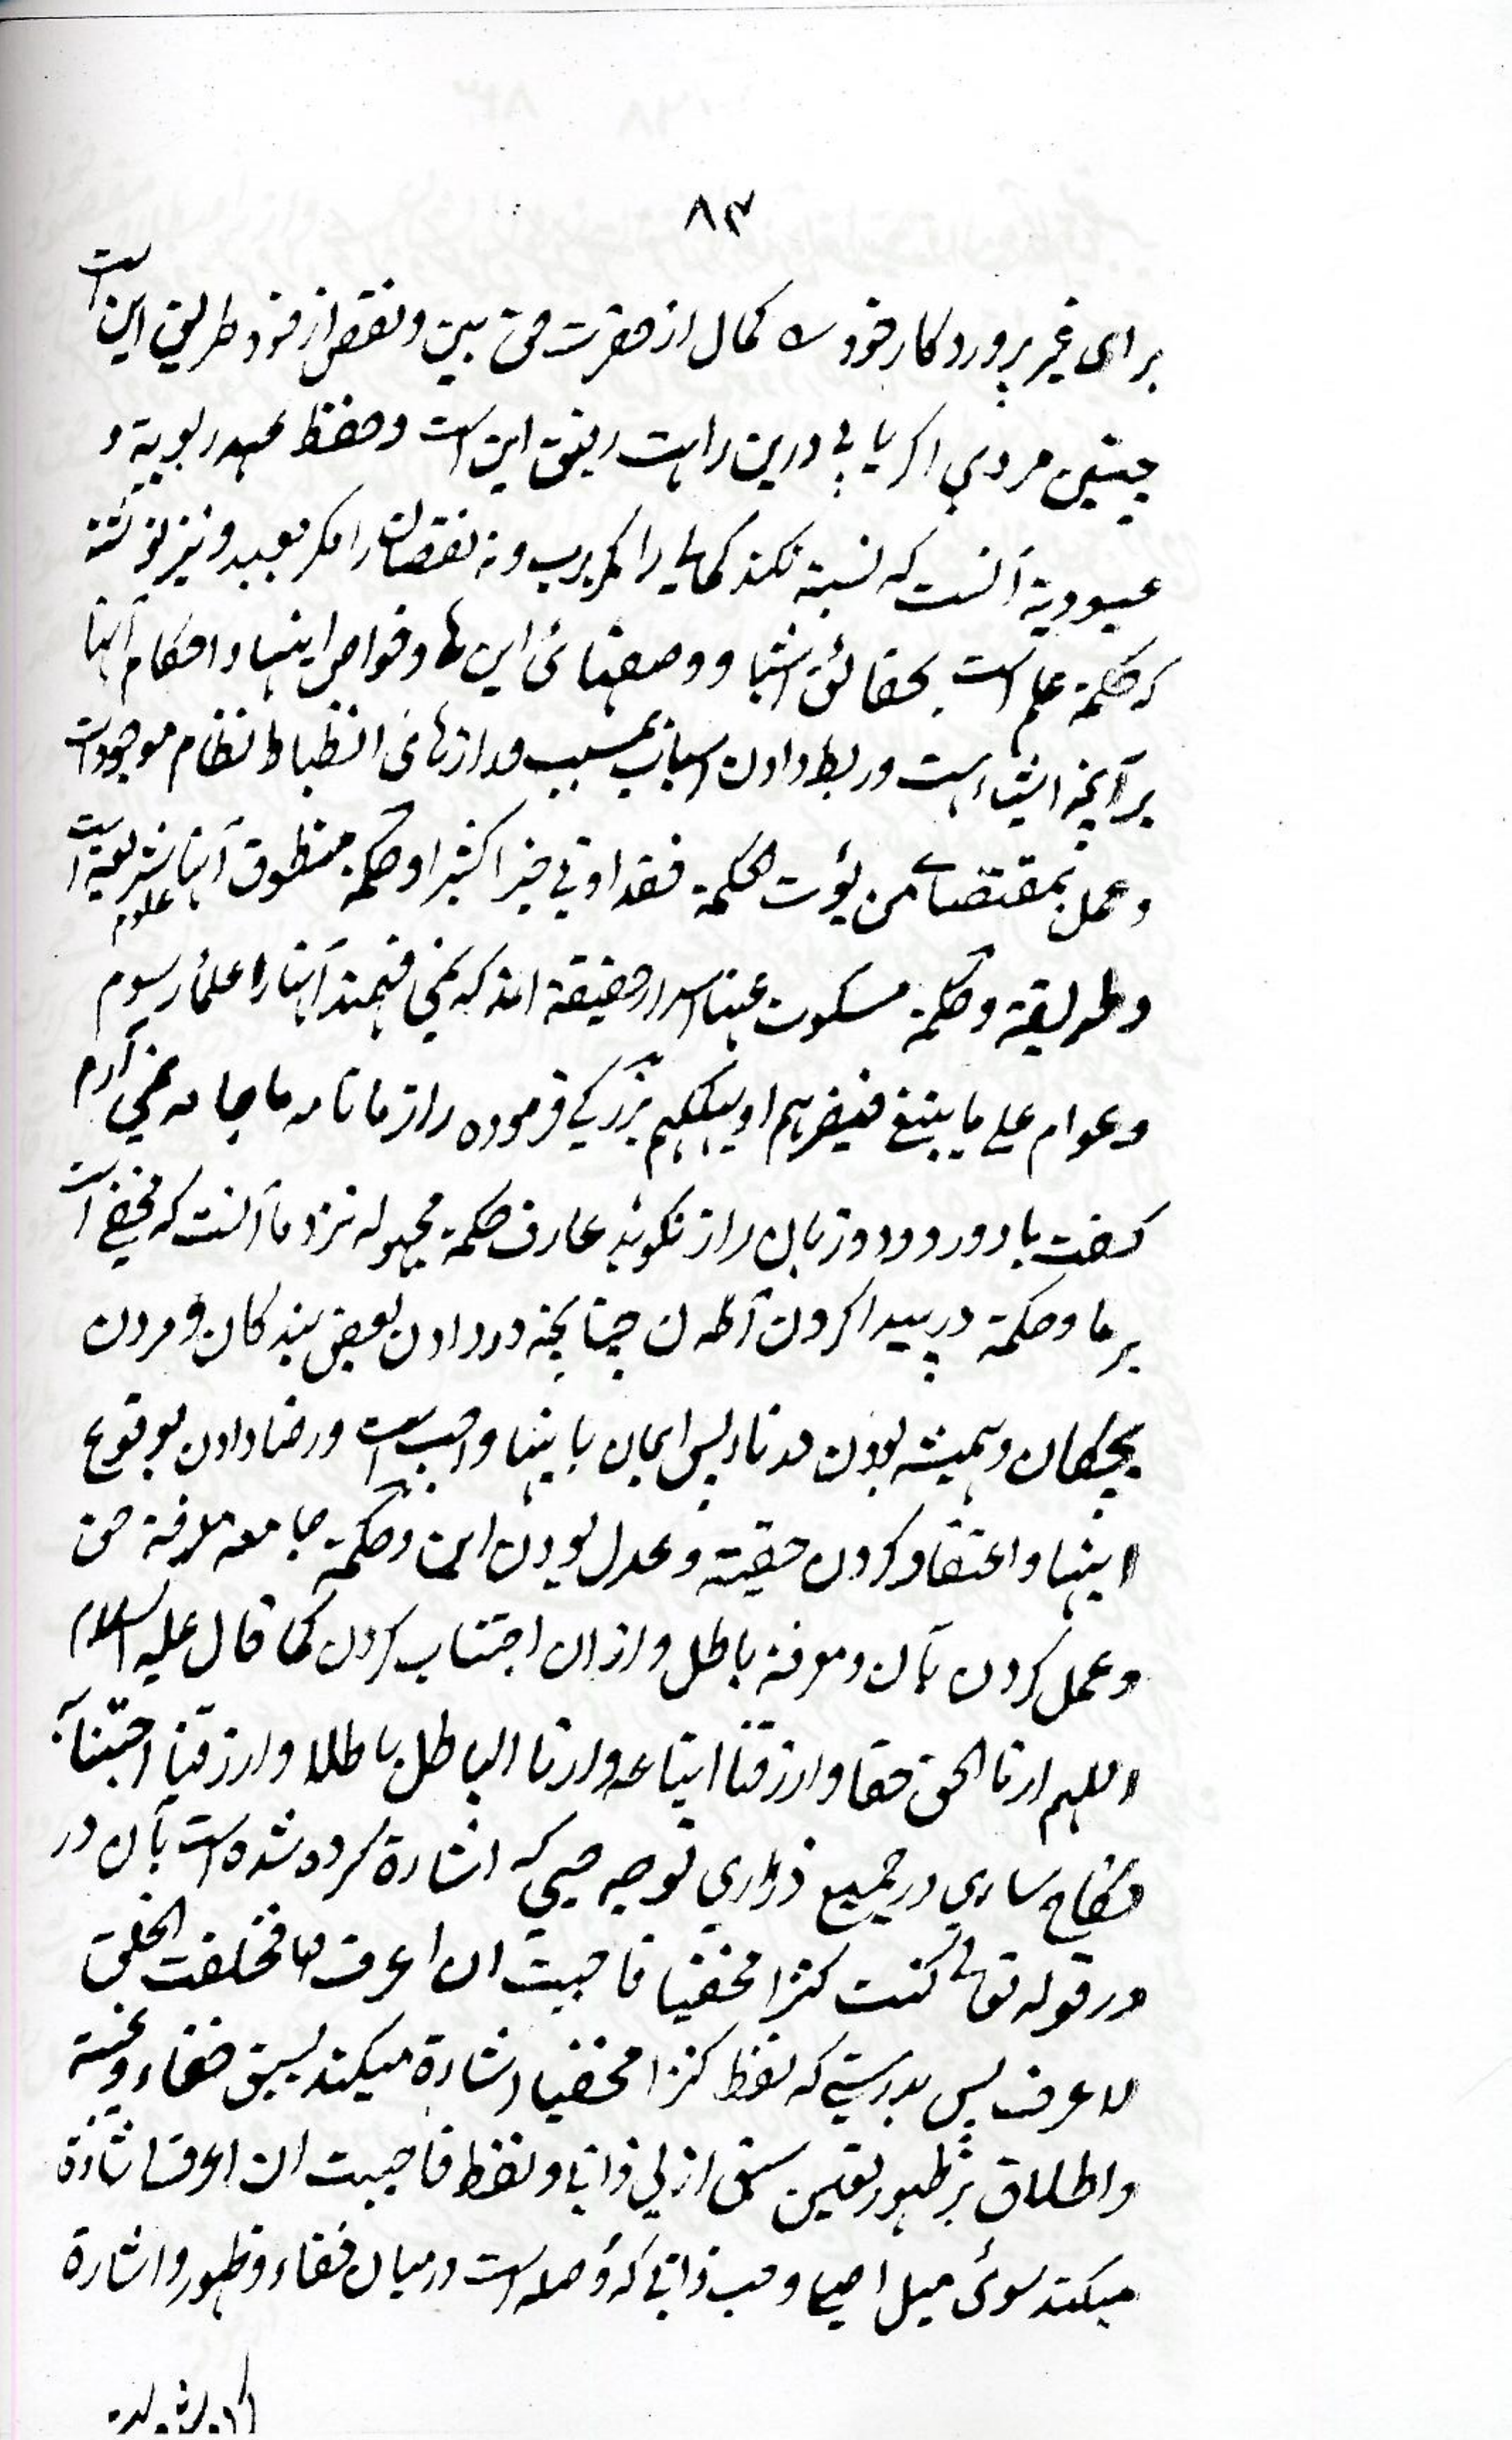 ۸۳
برای غیر پروردکار خود ے کمال از حضرت حق بین و نقص از خود طریق این است
چنین مردی اکر یابی درین راہت رفیق این است و حفظ عہد ربوبیة و
عبودیة آنست کہ نسبة نکند کمالے را مکر برب و نہ نقصان را مکر بعبد و نیز نوشتہ
کہ حکمة علم است بحقائق اشیا و وصفہائ این ہا و خواص اینہا و احکام آنہا
بر آنچہ اشیاء است و ربط دادن اسباب بمسبب و رازہائ انظباط انتظام موجودات
و عمل بمقتضاے من یؤت الحکمة فقد اوتی خیرا کثیرا و حکمة منطوق آنہا علوم شریعة است
و طریقة و حکمة مسکوت عنہا اسرار حقیقة اند کہ نمی فہمند آنہا را علمأ رسوم
و عوام علے ما ینبغ فیضرہم او یہلکہم بزرکی فرمودہ راز ما نامہ ما جامہ نمی آرم
کفت با دور و دو زبان راز نکویند عارف حکمة مجہولہ نزد ما آنست کہ مخفی است
بر ما و حکمة در پیدا کردن آن چنانچہ درد دادن بعض بندکان و مردن
بچکان و ہمیشہ بودن در نار پس ایمان باینہا واجب است و رضا دادن بوقوع
اینہا و اعتقاد کردن حقیتہ و عدل بودن این و حکمة جامعہ معرفة حق
و عمل کردن بآن و معرفة باطل و ازان اجتناب کردن کما قال علیہ السلام
اللہم ارنا الحق حقا و ارزقنا اتباعہ و ارنا الباطل باطلا و ارزقنا اجتنابہ
نکاح ساری در جمیع ذراری توجہ حبی کہ اشارة کردہ شدہ است بآن در
در قولہ تعالے کنت کنزا مخفیا فاحببت ان اعرف فخلقت الخلق
لاعرف پس بدرستے کہ لفظ کنزا مخفیا اشارة میکند بسبق خفاء و غیبة
و اطلاق بر ظہور تعین سبق ازلی ذاتی و لفظ فاحببت ان اعرف اشارة
میکند سوئ میل اصلی و حب ذاتی کہ وصلہ است درمیان خفاء و ظہور و اشارة